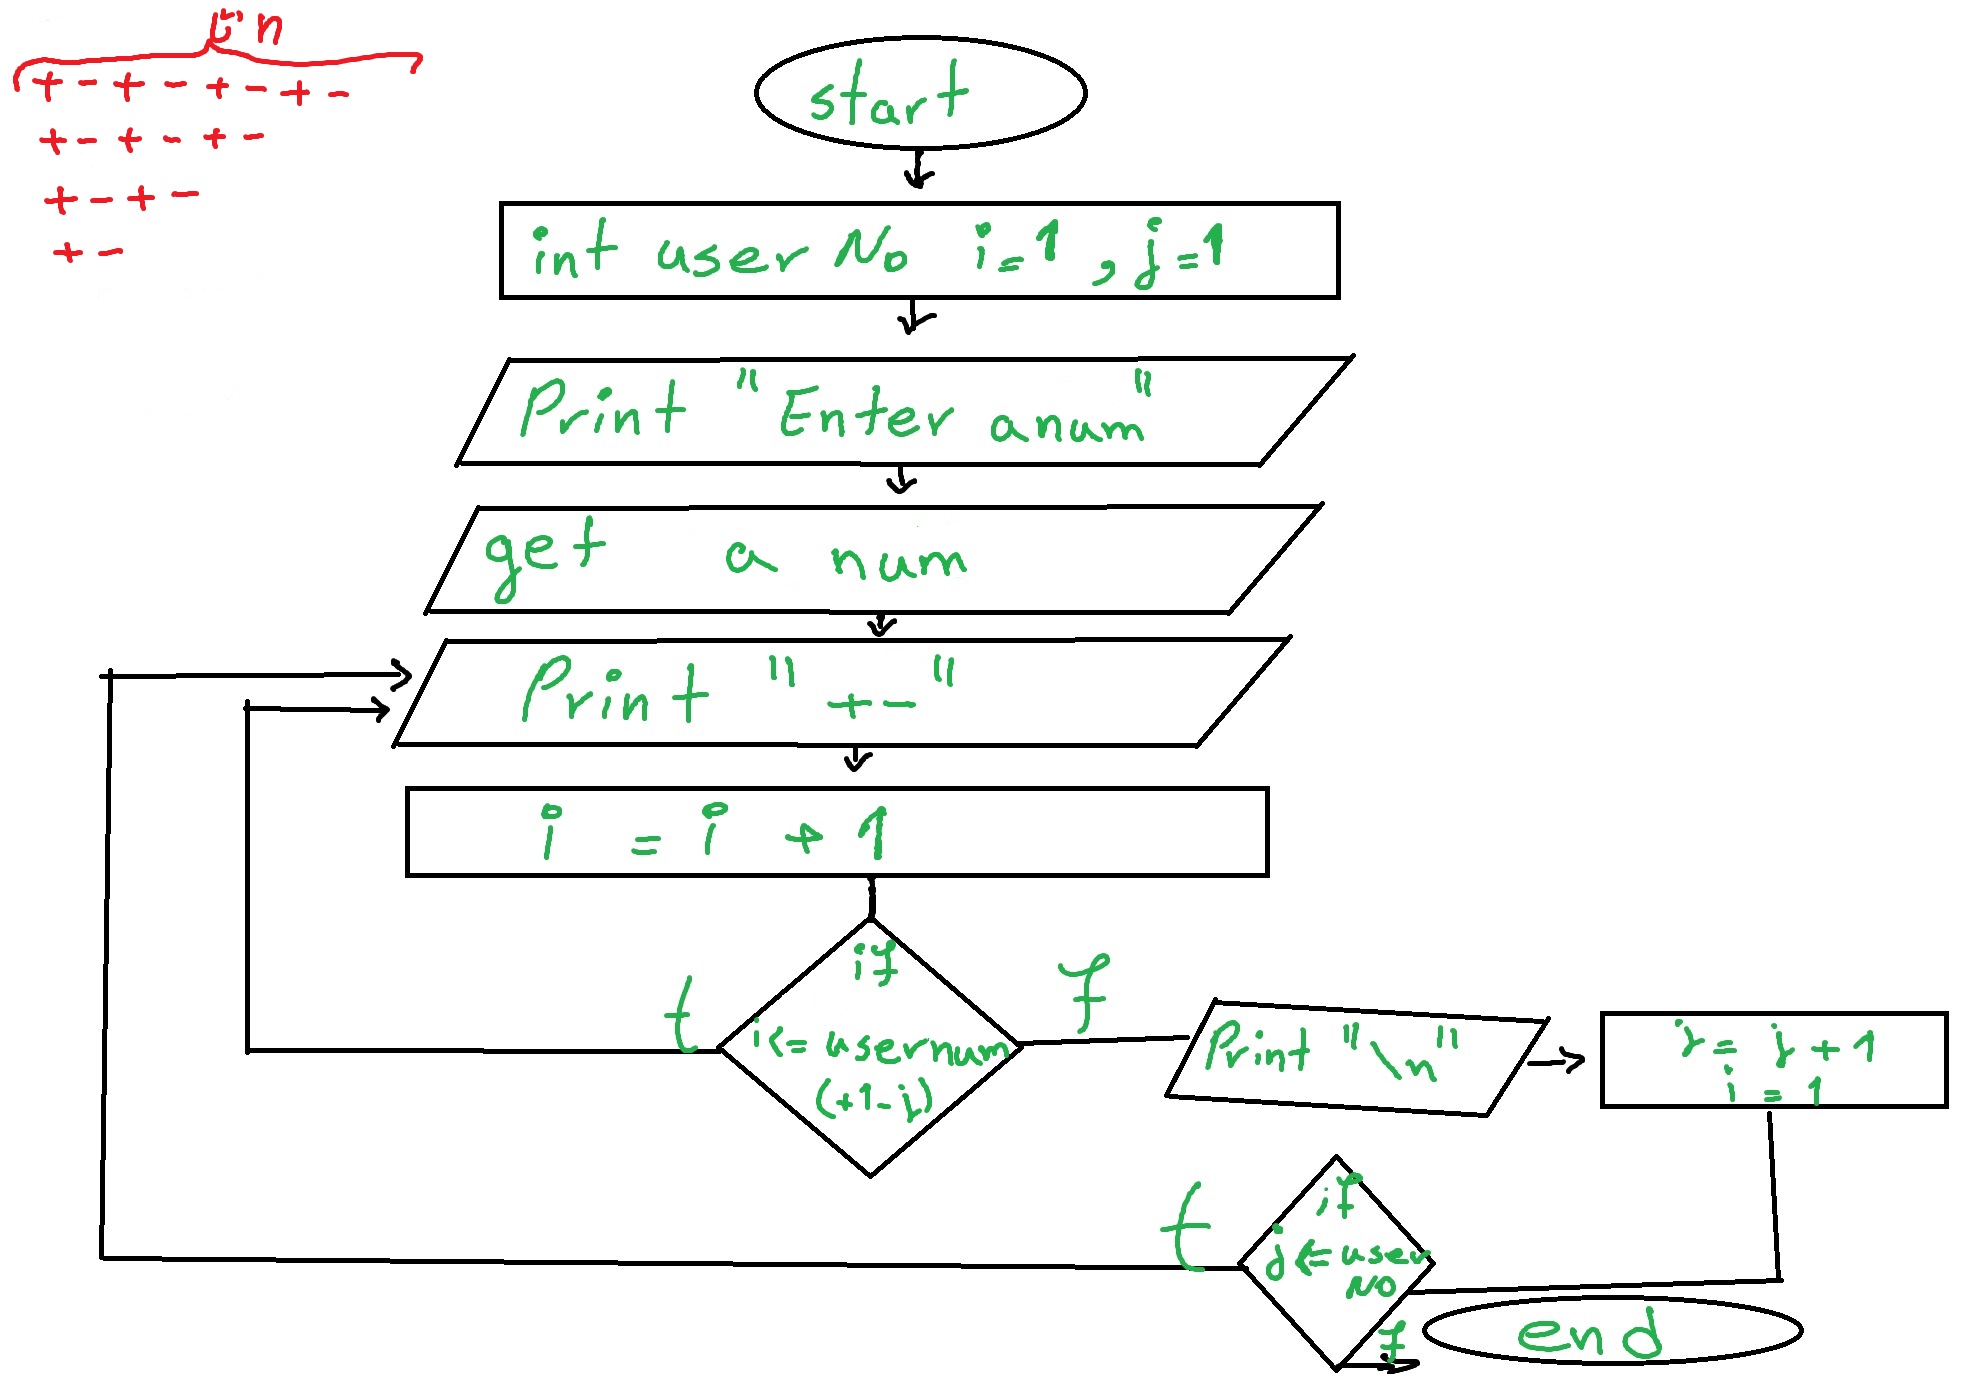 تا n
+ - + - + - + -
+ - + - + -
+ - + -
+ -
start
int user No i=1 , j=1
Print "Enter anum"
get a num
Print "+-"
i = i + 1
if
i<= usernum
(+1-j)
t
f
Print "\n"
j = j + 1
i = 1
if
j <= user
NO
t
f
end